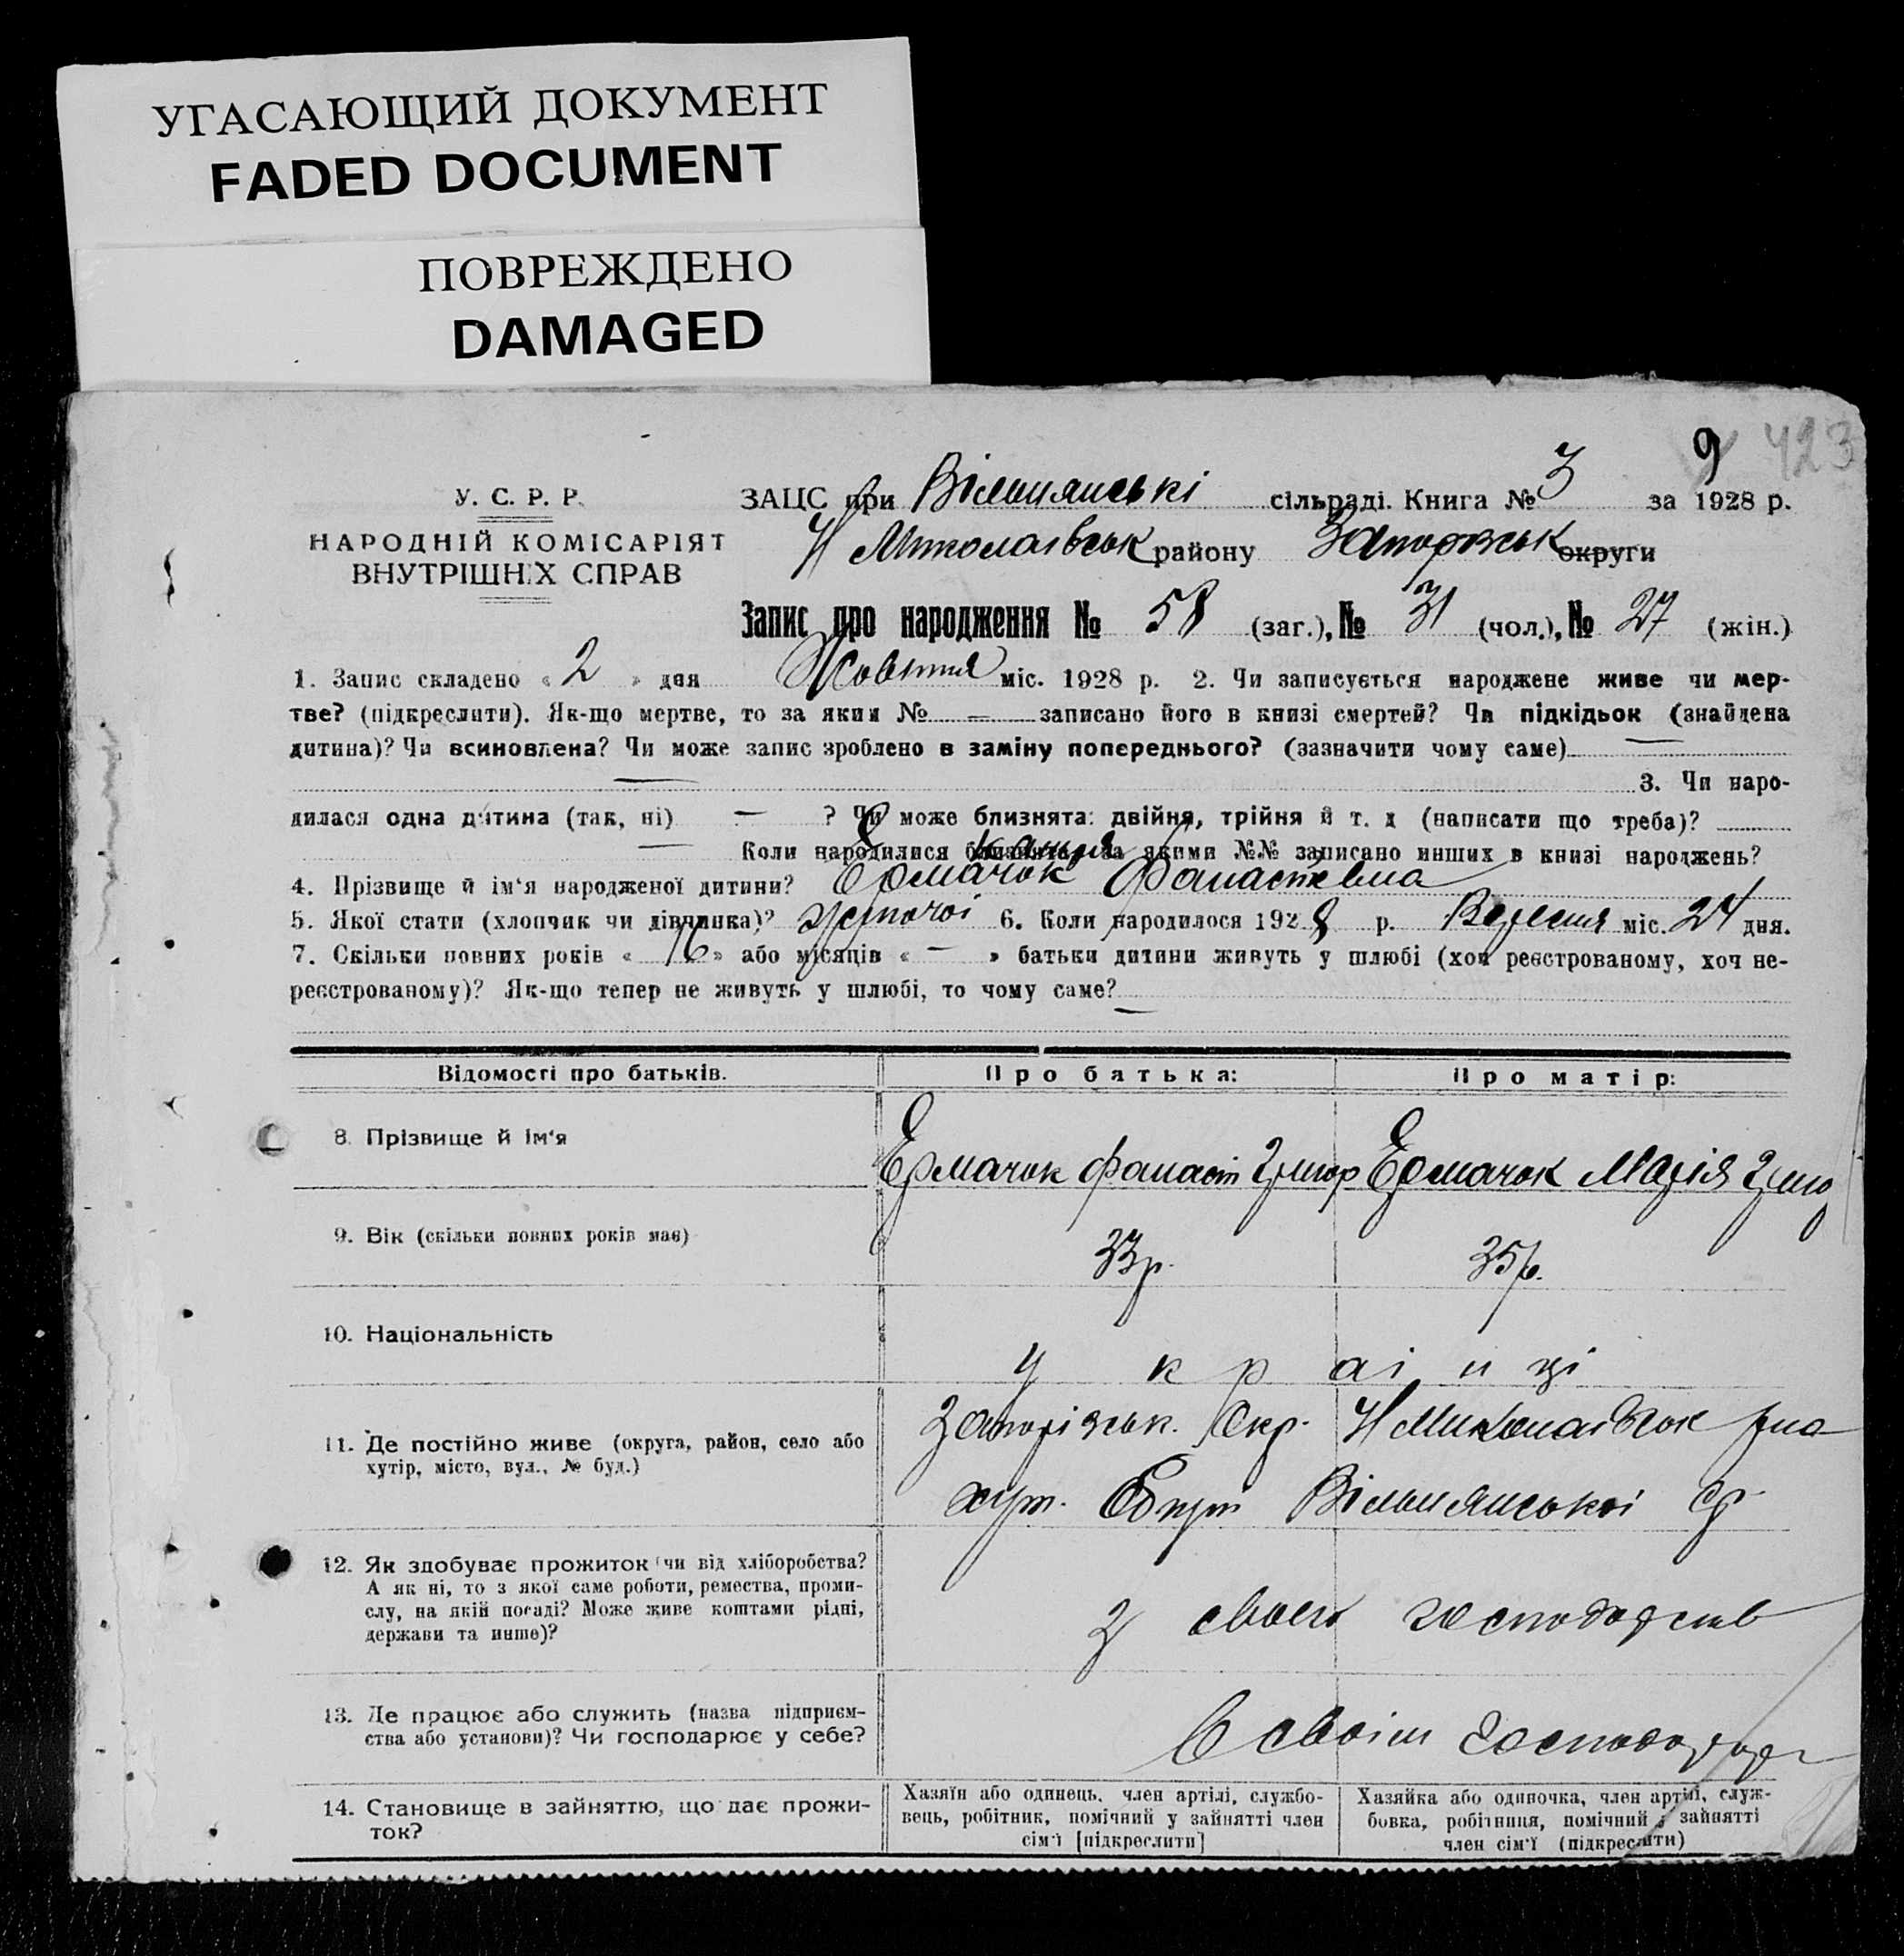 УГАСАЮЩИЙ ДОКУМЕНТ
FADED DOCUMENT
ПОВРЕЖДЕНО
DAMAGED
9 423
У. С. Р. Р.
НАРОДНІЙ КОМІСАРІЯТ
ВНУТРІШНІХ СПРАВ
ЗАЦС при Вільнянські сільраді. Книга № 3 за 1928 р.
Н Миколаївськ району округи
Запис про народження № 58 (заг.), № 31 (чол.), № 27 (жін.)
1. Запис складено « 2 » дня Жовтня міс. 1928 р. 2. Чи записується народжене живе чи мер-
тве? (підкреслити). Як-що мертве, то за яким № — записано його в книзі смертей? Чи підкідьок (знайдена
дитина)? Чи всиновлена? Чи може запис зроблено в заміну попереднього? (зазначити чому саме) —
— 3. Чи наро-
дилася одна дитина (так, ні) — ? Чи може близнята: двійня, трійня й т. д (написати що треба)?
— Коли народилися близнята, за якими №№ записано инших в книзі народжень?
4. Прізвище й ім‘я народженої дитини? Єрмачок Фанастівна
5. Якої стати (хлопчик чи дівчинка)? жіночоі 6. Коли народилося 1928 р. Вересня міс. 24 дня.
7. Скільки повних років « 16 » або місяців « — » батьки дитини живуть у шлюбі (хоч реєстрованому, хоч не-
реєстрованому)? Як-що тепер не живуть у шлюбі, то чому саме? —
Відомості про батьків. Про батька: Про матір:
8. Прізвище й ім‘я Єрмачок Фанаст Григор Єрмачок Марія
9. Вік (скільки повних років має) 33 р. 35 р.
10. Національність українці
11. Де постійно живе (округа, район, село або
хутір, місто, вул., № буд.)
Запорізськ. Окр. Н Миколаївськ рна
хут. Вільнянськоі ср
12. Як здобуває прожиток (чи від хліборобства?
А як ні, то з якої саме роботи, ремества, проми-
слу, на якій посаді? Може живе коштами рідні,
держави та инше)?
З свого господарств
13. Де працює або служить (назва підприєм-
ства або установи)? Чи господарює у себе?
В своім
14. Становище в зайняттю, що дає прожи-
ток?
Хазяїн або одинець, член артілі, службо-
вець, робітник, помічний у зайнятті член
сім‘ї [підкреслити]
Хазяйка або одиночка, член артілі, служ-
бовка, робітниця, помічний у зайнятті
член сім‘ї (підкреслити)